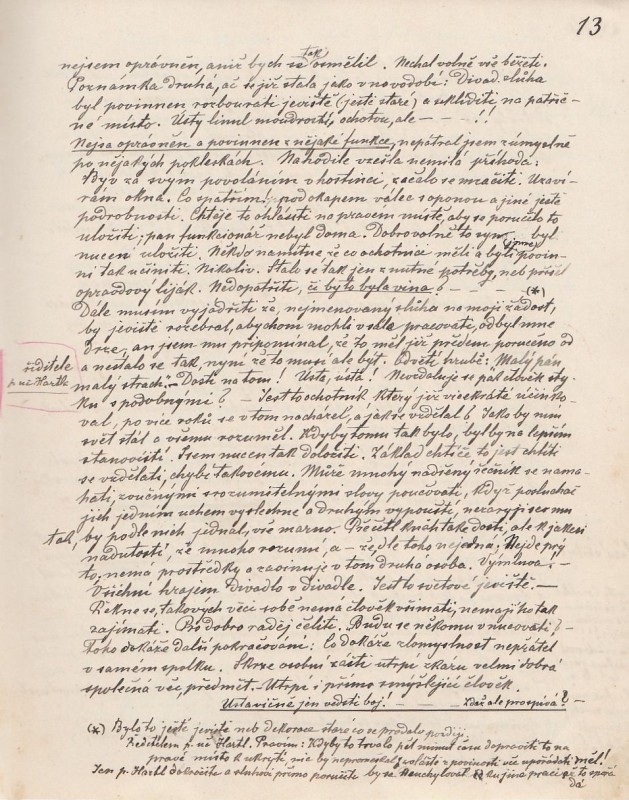 13
nejsem oprávněn, aniž bych se tak osmělil. Nechal volně vše běžeti.
Poznámka druhá, ač se již stala jako v novodobé: Divad. sluha
byl povinnen rozbourati jeviště (ještě staré) a uklíditi na patřič-
né místo. Ústy linul moudrostí, ochotou, ale — — — !!
Nejsa oprávněn a povinnen z nějaké funkce, nepátral jsem zúmyslně
po nějakých pokleskách. Nahodile vzešla nemilá příhoda:
Byv za svým povoláním v hostinci, začalo se mračiti. Uzaví-
rám okna. Co spatřím: pod okapem válec s oponou a jiné ještě
podrobnosti. Chtěje to ohlásiti na pravém místě, aby se poručilo to
uložiti; pan funkcionář nebyl doma. Dobrovolně to syn (jmen) byl
nucen uložiti. Někdo namítne že co ochotníci měli a byli povin-
ni tak učiniti. Nikoliv. Stalo se tak jen z nutné potřeby, neb přišel
opravdový liják. Nedopatřite, čí byto byla vina? — — — (*)
Dále musím vyjádřiti že, nejmenovaný sluha na moji žádost,
by jeviště rozebral, abychom mohli v sále pracovati, odbyl mne
drze, an jsem mu připomínal, že to měl již předem poručeno od
ředitele p. uč. Hartla
a nestalo se tak, nyní že to musí ale být. Odvětí hrubě: Malý pán
malý strach. — Dosti na tom! Ústa, ústa! Neodsluje se pak člověk sty-
ku s podobnými? — Jest to ochotník který již vícekráte účinko-
val, po více roků se v tom nacházel, a jak se vzdělal? Jako by nám
svět stál a všemu rozuměl. Kdyby tomu tak bylo, byl by na lepším
stanovišti. Jsem nucen tak doložiti. Základ chtíče to jest chtíti
se vzdělati, chybí takovému. Může mnohý nadšený řečník se nama-
hati, zvučnými srozumitelnými slovy poučovati, když posluchač
jich jedním uchem vyslechne a druhým vypouští, nezaryjí se mu
tak, by podle nich jednal, vše marno. Přečetl knih také dosti, ale k jakési
nadutosti, že mnoho rozumí, a — že, dle toho nejedná; Nejde prý
to, nemá prostředky a zaviňuje v tom druhá osoba. Výmluva. —
Všichni hrajem Divadlo v divadle. Jest to světové jeviště. —
Řekne se, takových věcí sobě nemá člověk všímati, nemají ho tak
zajímati. Pro dobro raděj čeliti. Budu se někomu vnucovati? —
Toho dokáže další pokračování: Co dokáže zlomyslnost nepřátel
v samém spolku. Skrze osobní zášti utrpí zkázu velmi dobrá
společná věc, předmět. — Utrpí i přímo smýšlející člověk.
Ustavičně jen vedsti boj! — — — Kdož ale prospívá? —
(*) Bylo to ještě jeviště neb dekorace staré co se prodalo později.
Ředitelem p. uč. Hartl. Pravím: Kdyby to trvalo pět minut času dopraviti to na
pravé místo k ukrytí, nic by nepromoknul, zvláště z povinosti vše uspořádati měl!
Sám p. Hartl dokročiše a sluhovi přímo poručiše by se neuchyloval ku jiné práci až to spořá
dá